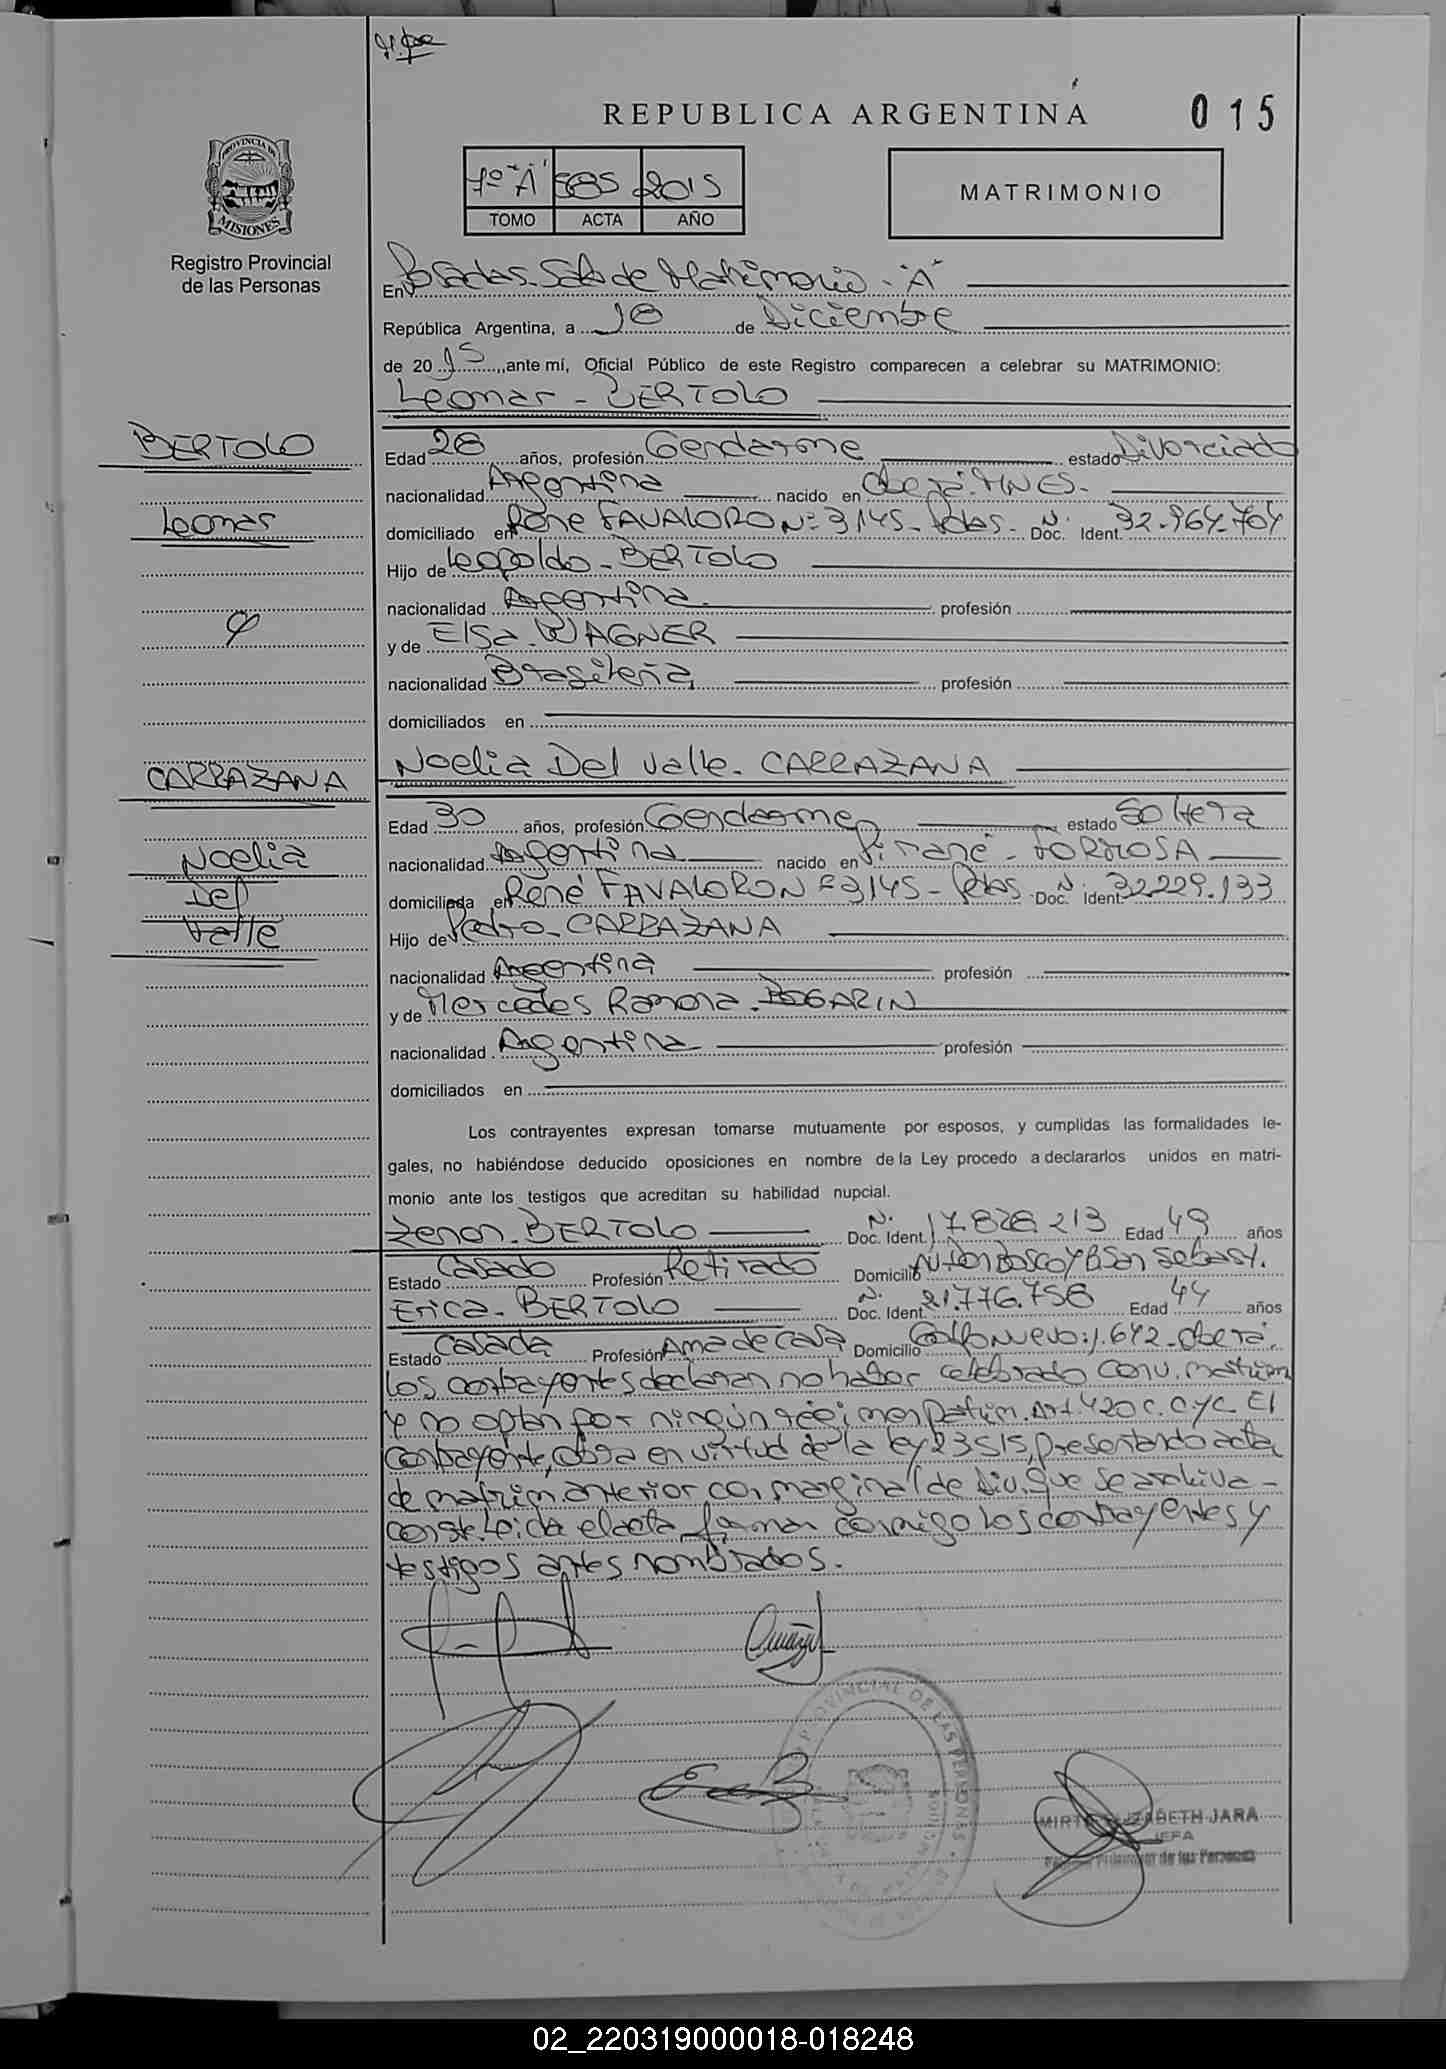 REPUBLICA ARGENTINA
015
PROVINCIA DE
MISIONES
Registro Provincial
de las Personas
1º "A" 585 2015
TOMO ACTA AÑO
MATRIMONIO
En Posadas. Sala de Matrimonio - "A"
República Argentina, a 18 de Diciembre
de 2015, ante mí, Oficial Público de este Registro comparecen a celebrar su MATRIMONIO:
Leomar - BERTOLO
BERTOLO
Leomar
y
Edad 28 años, profesión Gendarme estado Divorciado
nacionalidad Argentina nacido en Oberá. MNES.
domiciliado en René FAVALORO Nº 3145 - Pdas - Doc. N. Ident. 32.964.704
Hijo de Leopoldo - BERTOLO
nacionalidad Argentina. profesión
y de Elsa. WAGNER
nacionalidad Brasileña profesión
domiciliados en
CARRAZANA
Noelia
Del
Valle
Noelia Del Valle. CARRAZANA
Edad 30 años, profesión Gendarme estado Soltera
nacionalidad Argentina nacido en Pirané - FORMOSA
domiciliada en René FAVALORO Nº 3145 - Pdas Doc. N. Ident. 32.229.133
Hijo de Pedro - CARRAZANA
nacionalidad Argentina profesión
y de Mercedes Ramona. BOGARIN
nacionalidad Argentina profesión
domiciliados en
Los contrayentes expresan tomarse mutuamente por esposos, y cumplidas las formalidades le-
gales, no habiéndose deducido oposiciones en nombre de la Ley procedo a declararlos unidos en matri-
monio ante los testigos que acreditan su habilidad nupcial.
Zenon. BERTOLO Doc. N. Ident. 17.828.213 Edad 49 años
Estado Casado Profesión Retirado Domicilio Don Bosco y B. San Sebast.
Erica - BERTOLO Doc. N. Ident. 21.776.758 Edad 44 años
Estado Casada Profesión Ama de Casa Domicilio Golfo Nuevo: 1.642 - Oberá.
Los contrayentes declaran no haber celebrado conv. matrim
y no optan por ningún régimen patrim. Art. 420 C. C y C. El
contrayente, obra en virtud de la ley 23515, presentando acta
de matrim. anterior con marginal de Div. que se archiva -
conste. Leída el acta, firman conmigo los contrayentes y
testigos antes nombrados.
PROVINCIAL DE LAS PERSONAS
MIRTA ELIZABETH JARA
JEFA
Registro Provincial de las Personas
02_220319000018-018248